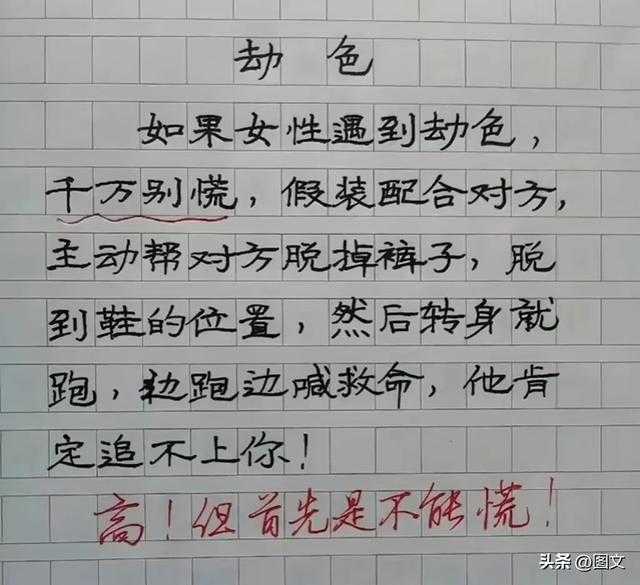 劫色
如果女性遇到劫色，
千万别慌，假装配合对方，
主动帮对方脱掉裤子，脱
到鞋的位置，然后转身就
跑，边跑边喊救命，他肯
定追不上你！
高！但首先是不能慌！
头条 @图文